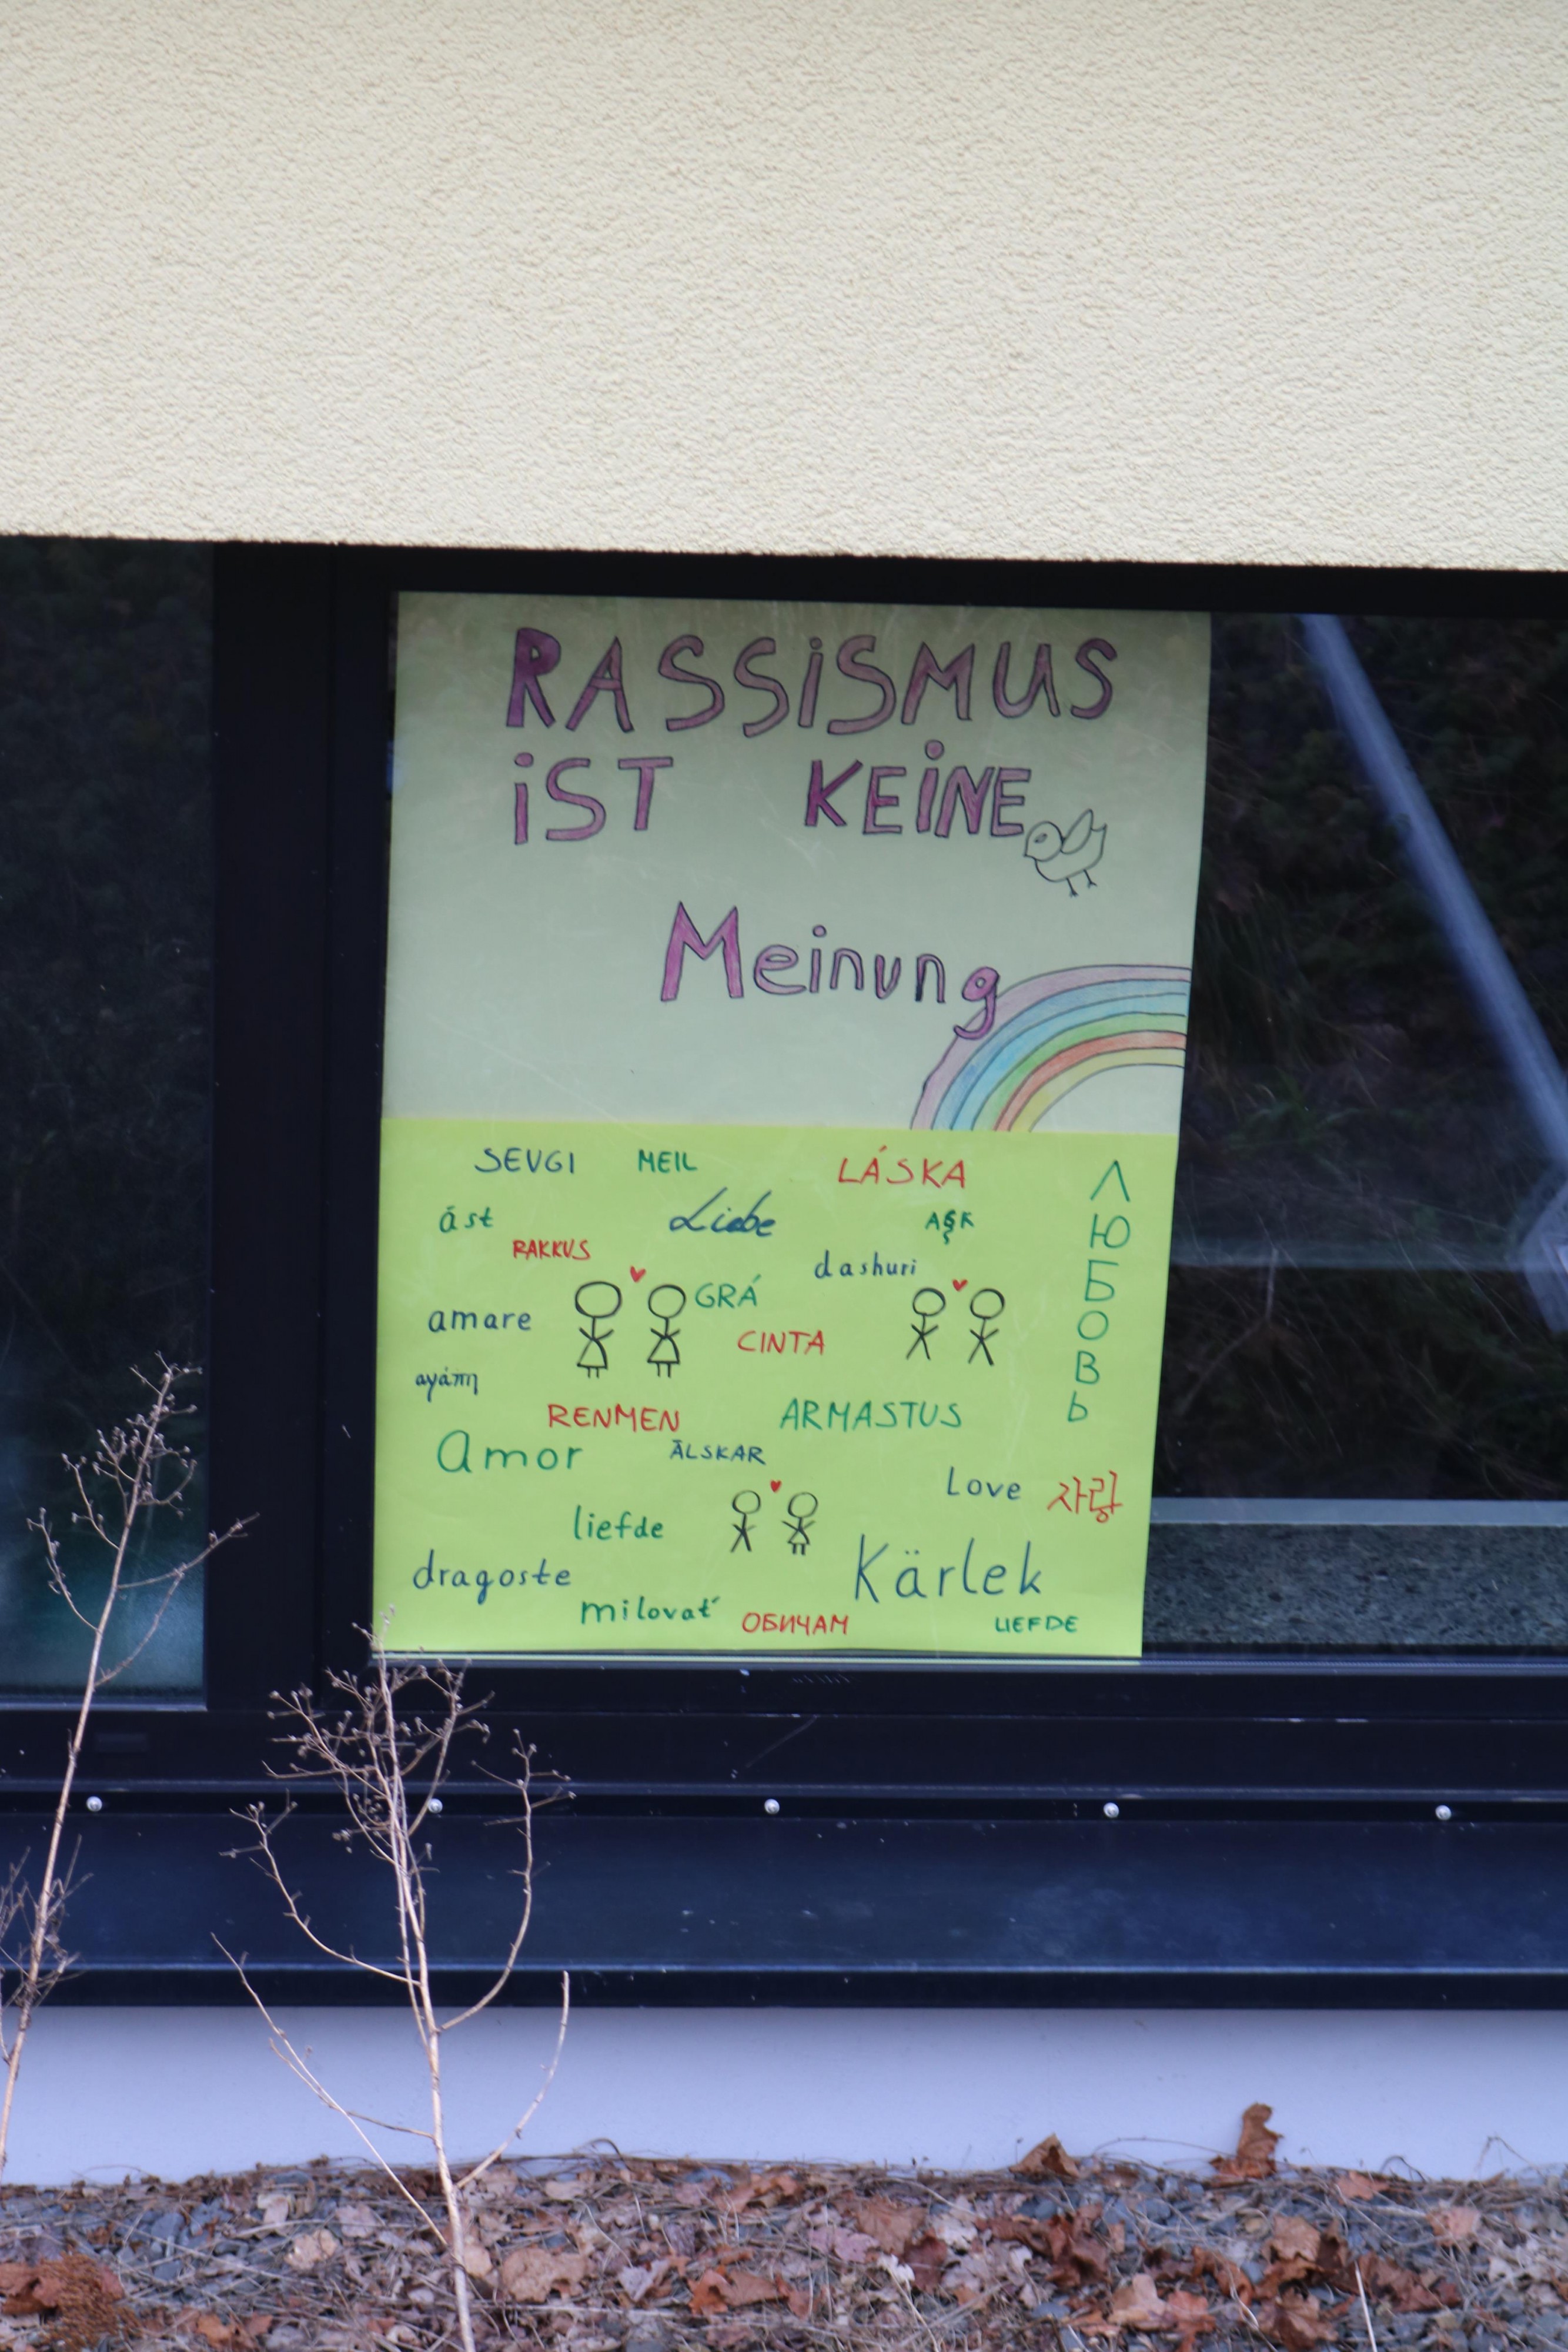 RASSiSMUS
iST KEiNE
Meinung
SEVGI MEIL LÁSKA
ást Liebe AŞK
RAKKUS
dashuri
GRÁ
amare
CINTA
αγάπη
ЛЮБОВЬ
RENMEN ARMASTUS
Amor ÄLSKAR
Love 자랑
liefde
dragoste Kärlek
milovať ОБИЧАМ LIEFDE